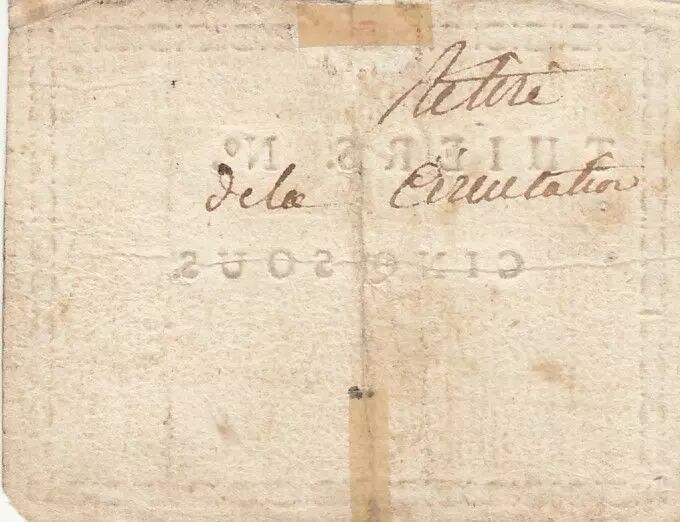 Retiré
THIERS. Nº
de la Circulation
CINQ SOUS